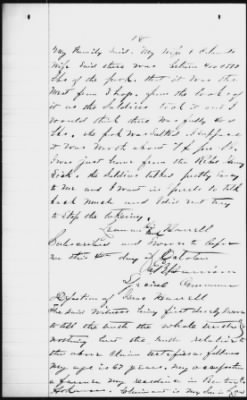 18
My Family said. My Wife &
Wife said there was between 400 & 500
lbs of the pork. that it was the
Meat from 5 hogs. from the looks of
it as the Soldiers took it out I
would think there was fully 400
lbs. the pork was Salted. I suppose
it was worth about 7 ¢ per lb.
I was just home from the Rebel Army
Sick. the Soldiers talked pretty
to me and I wasn't in to talk
back much and I did not try
to stop the taking.
Harrell
Subscribed and sworn to before
me this 4th day of October
Special Commr
Deposition of Harrell
the said Witness being first duly sworn
to tell the truth the whole truth &
nothing but the truth relative to
the above Claim testifies as follows
My age is 67 years, my occupation
a farmer my residence in
Claimant is my